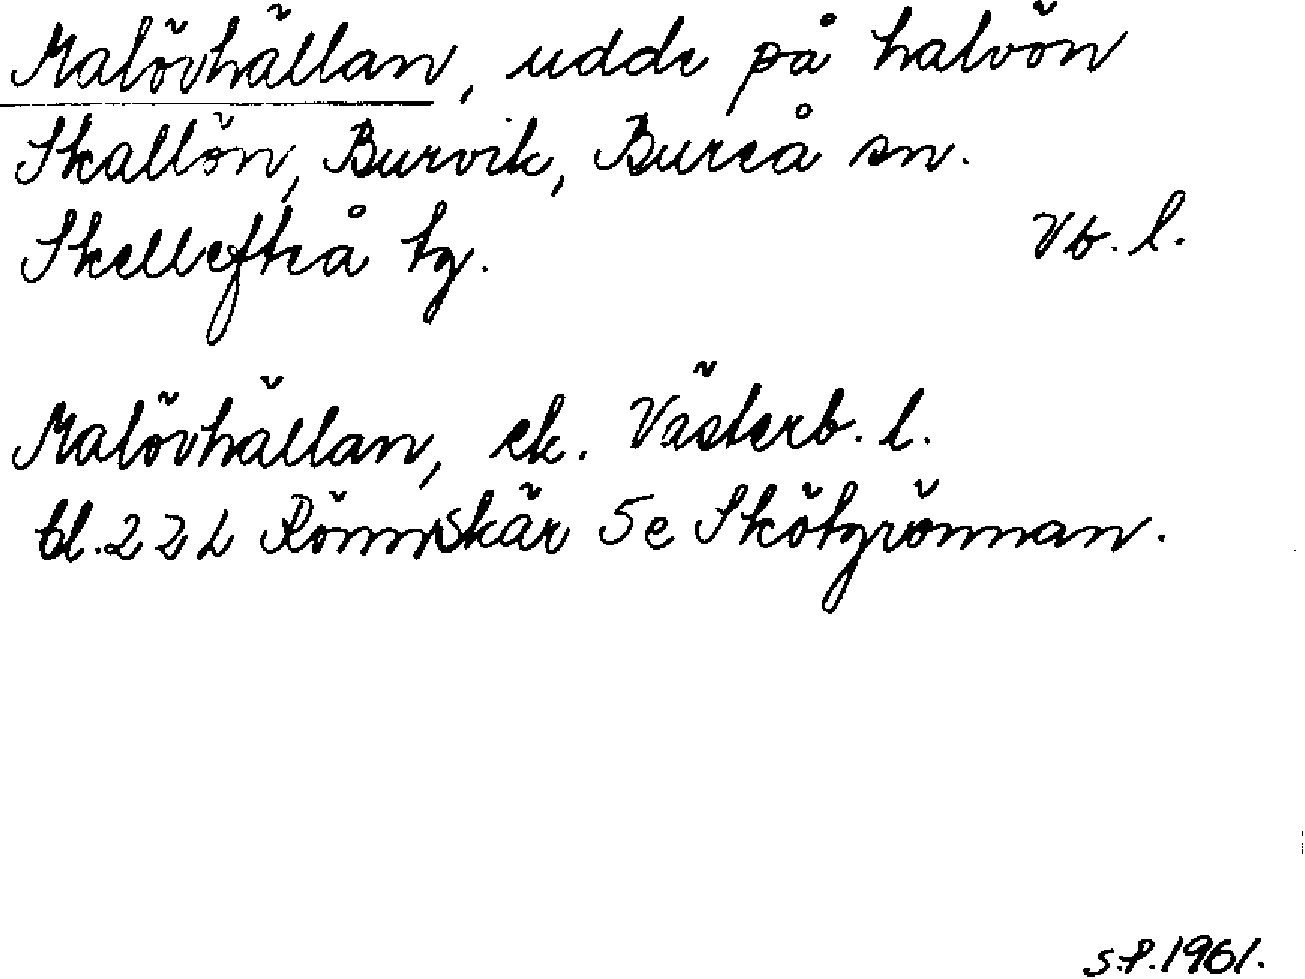 Malövhällan, udde på halvön
Skallön, Burvik, Bureå sn.
Skellefteå tg. Vb. l.
Malövhällan, ek. Västerb. l.
bl. 22 L Rönnskär 5e Skötgrönnan.
s.f. 1961.